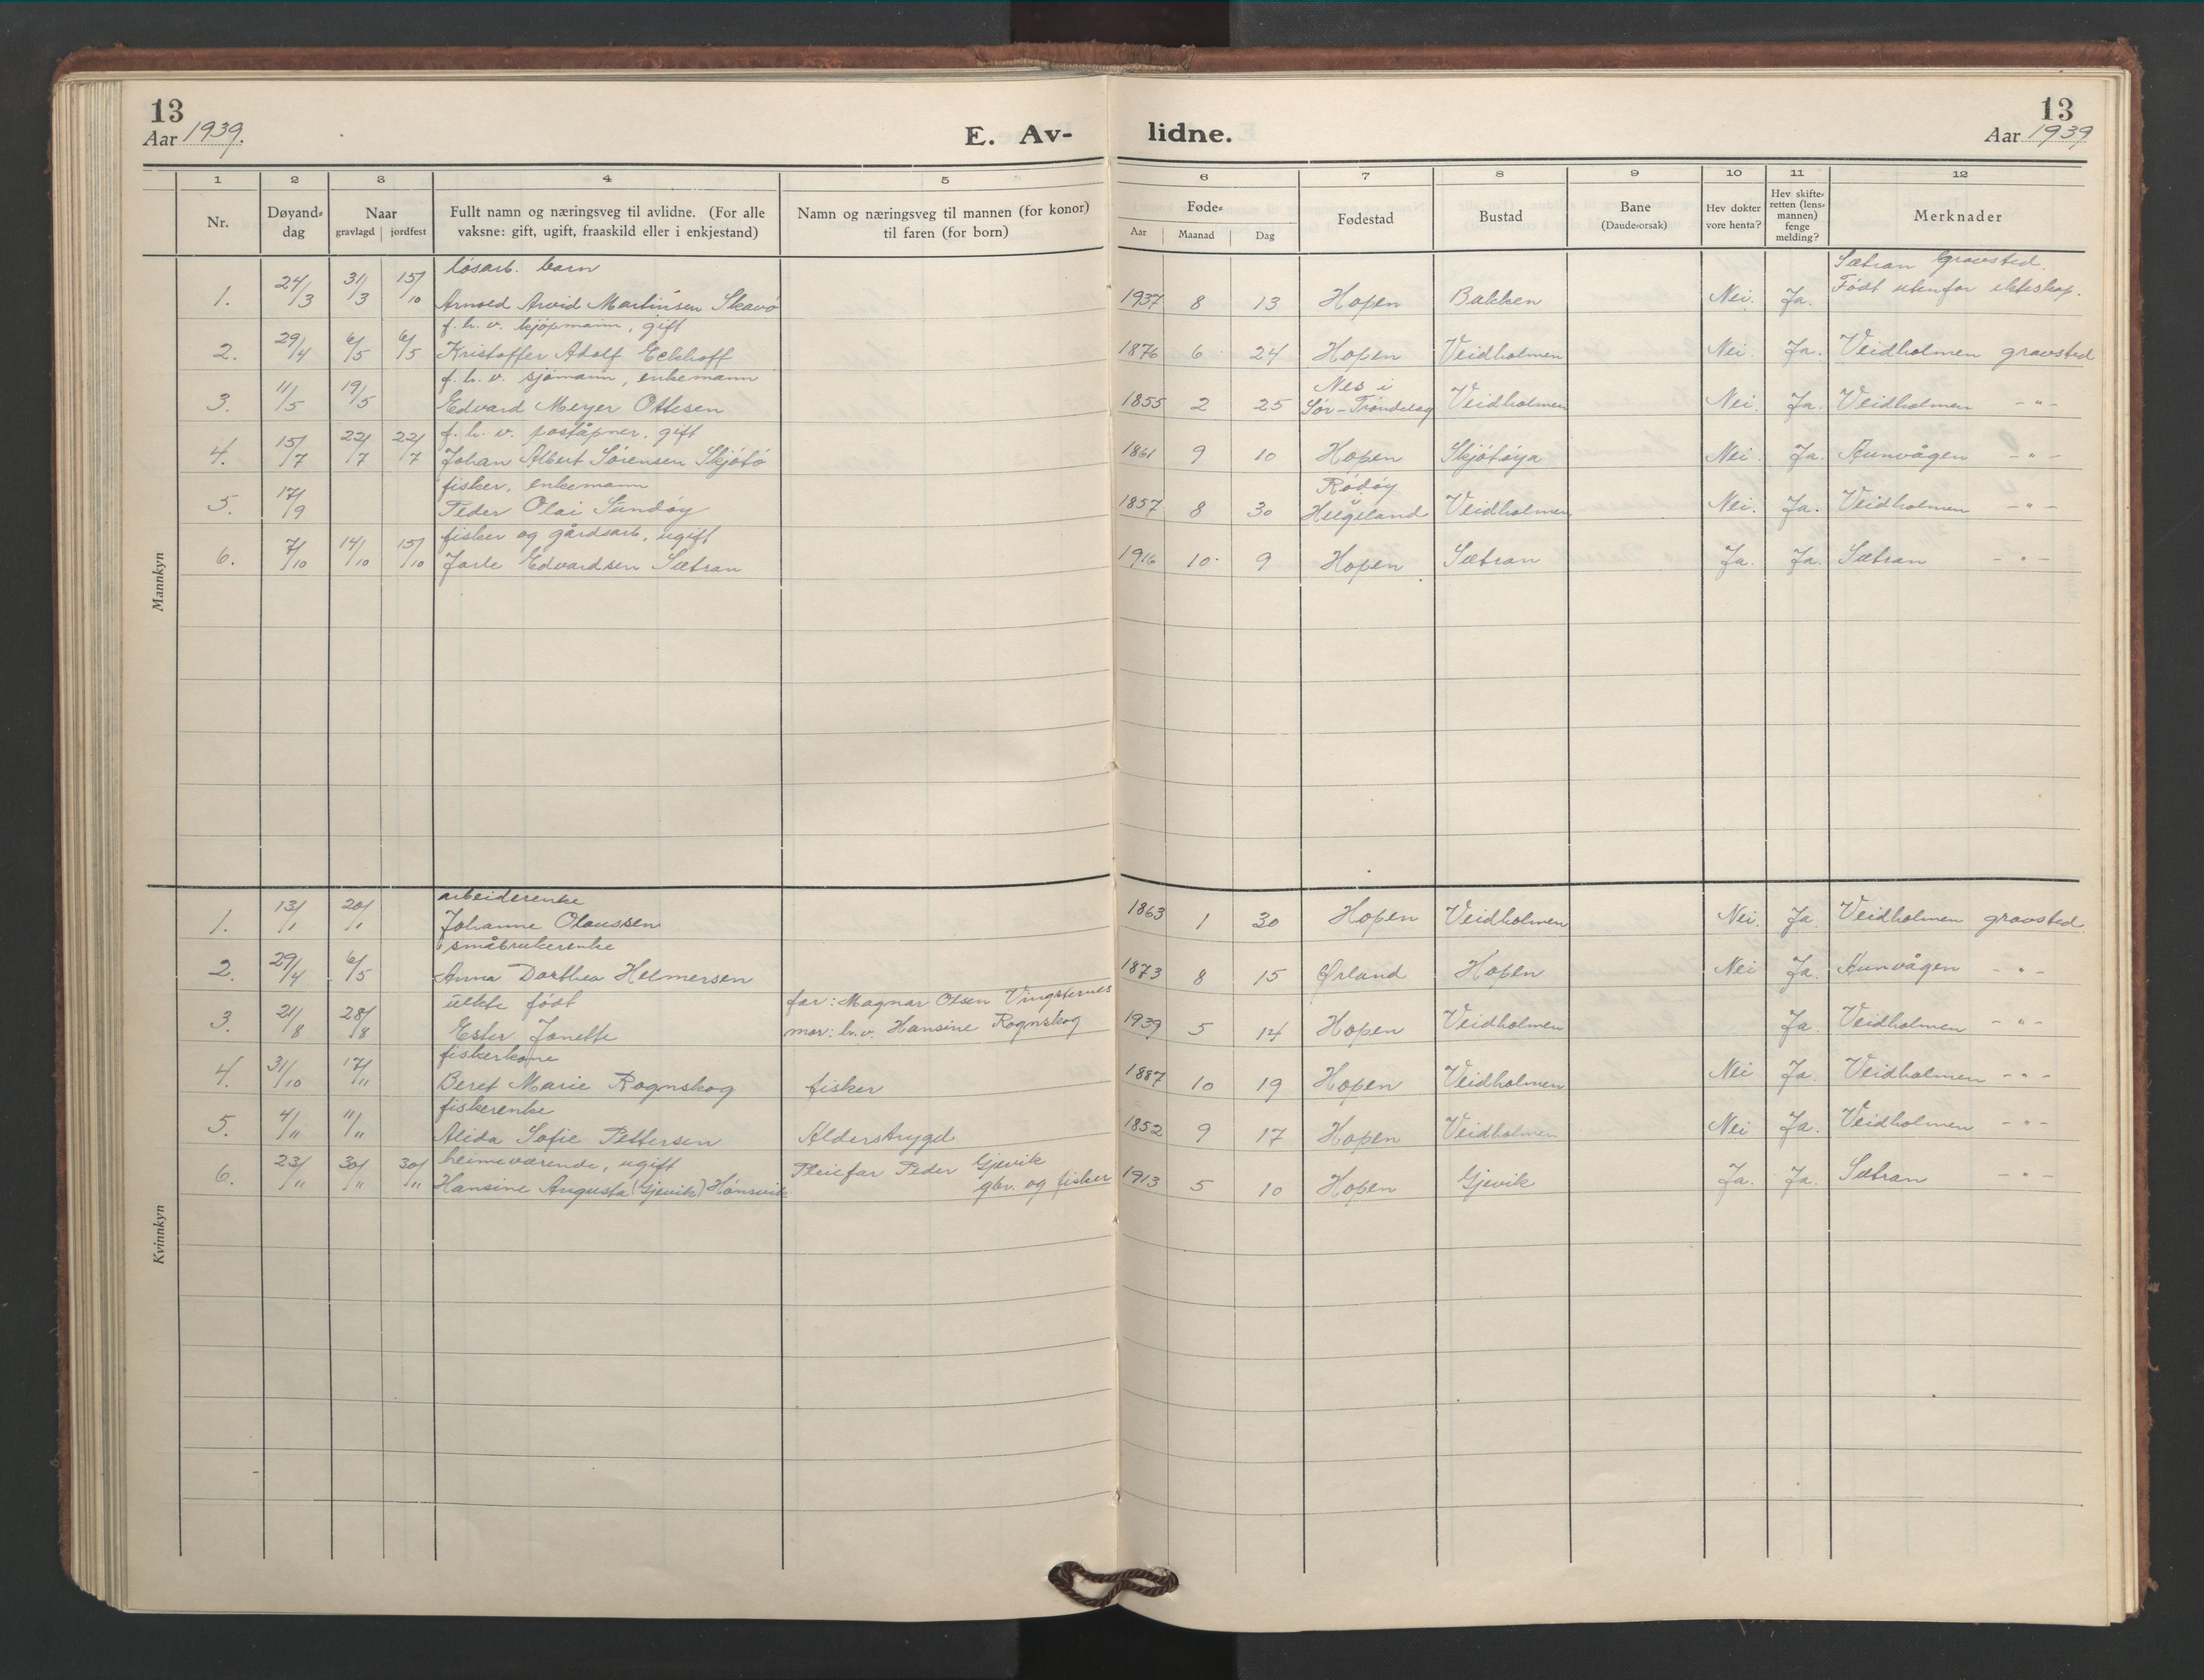 13
Aar 1939.
E. Av-
lidne.
13
Aar 1939
1 2 3 4 5 6 7 8 9 10 11 12
Nr.
Døyand-
dag
Naar
gravlagd | jordfest
Fullt namn og næringsveg til avlidne. (For alle
vaksne: gift, ugift, fraaskild eller i enkjestand)
Namn og næringsveg til mannen (for konor)
til faren (for born)
Føde-
Aar Maanad Dag
Fødestad
Bustad
Bane
(Daude-orsak)
Hev dokter
vore henta?
Hev skifte-
retten (lens-
mannen)
fenge
melding?
Merknader
Mannkyn
løsarb. barn Sætran Gravsted.
1. 24/3 31/3 15/10 Arnold Arvid Martinsen Skavø 1937 8 13 Hopen Bakken Nei. Ja. Født utenfor ekteskap.
f. h. v. kjøpmann, gift
2. 29/4 6/5 6/5 Kristoffer Adolf Eckhoff 1876 6 24 Hopen Veidholmen Nei. Ja. Veidholmen gravsted
f. h. v. sjømann, enkemann Nes i
3. 11/5 19/5 Edvard Meyer Ottesen 1855 2 25 Sør-Trøndelag Veidholmen Nei. Ja. Veidholmen -"-
f. h. v. poståpner, gift
4. 15/7 22/7 22/7 Johan Albert Sørensen Skjøtø 1861 9 10 Hopen Skjøtøya Nei. Ja. Kunvågen -"-
fisker, enkemann Rødøy
5. 17/9 Peder Olai Sundøy 1857 8 30 Helgeland Veidholmen Nei. Ja. Veidholmen -"-
fisker og gårdsarb, ugift
6. 7/10 14/10 15/10 Jarle Edvardsen Sætran 1916 10 9 Hopen Sætran Ja. Ja. Sætran -"-
Kvinnkyn
arbeiderenke
1. 13/1 20/1 Johanne Olaussen 1863 1 30 Hopen Veidholmen Nei. Ja Veidholmen gravsted
småbrukerenke
2. 29/4 6/5 Anna Dorthea Helmersen 1873 8 15 Ørland Hopen Nei Ja. Kunvågen -"-
uekte født far: Magnar Olsen Vingsternes
3. 21/8 28/8 Ester Jonette mor: h.v. Hansine Rognskog 1939 5 14 Hopen Veidholmen Ja. Veidholmen -"-
fiskerkone
4. 31/10 17/11 Beret Marie Rognskog fisker 1887 10 19 Hopen Veidholmen Nei Ja. Veidholmen -"-
fiskerenke
5. 4/11 11/11 Alida Sofie Pettersen Alderstrygd 1852 9 17 Hopen Veidholmen Nei Ja. Veidholmen -"-
heimeværende, ugift Pleiefar Peder Gjevik
6. 23/11 30/11 30/11 Hansine Augusta (Gjevik) Hønsvik gbr. og fisker 1913 5 10 Hopen Gjevik Ja. Ja. Sætran -"-